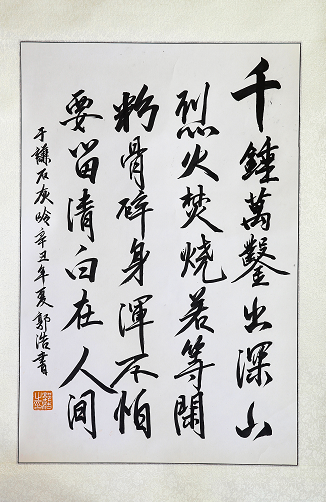 千錘萬鑿出深山
烈火焚燒若等閑
粉骨碎身渾不怕
要留清白在人间
于谦石灰吟辛丑年夏郭浩書